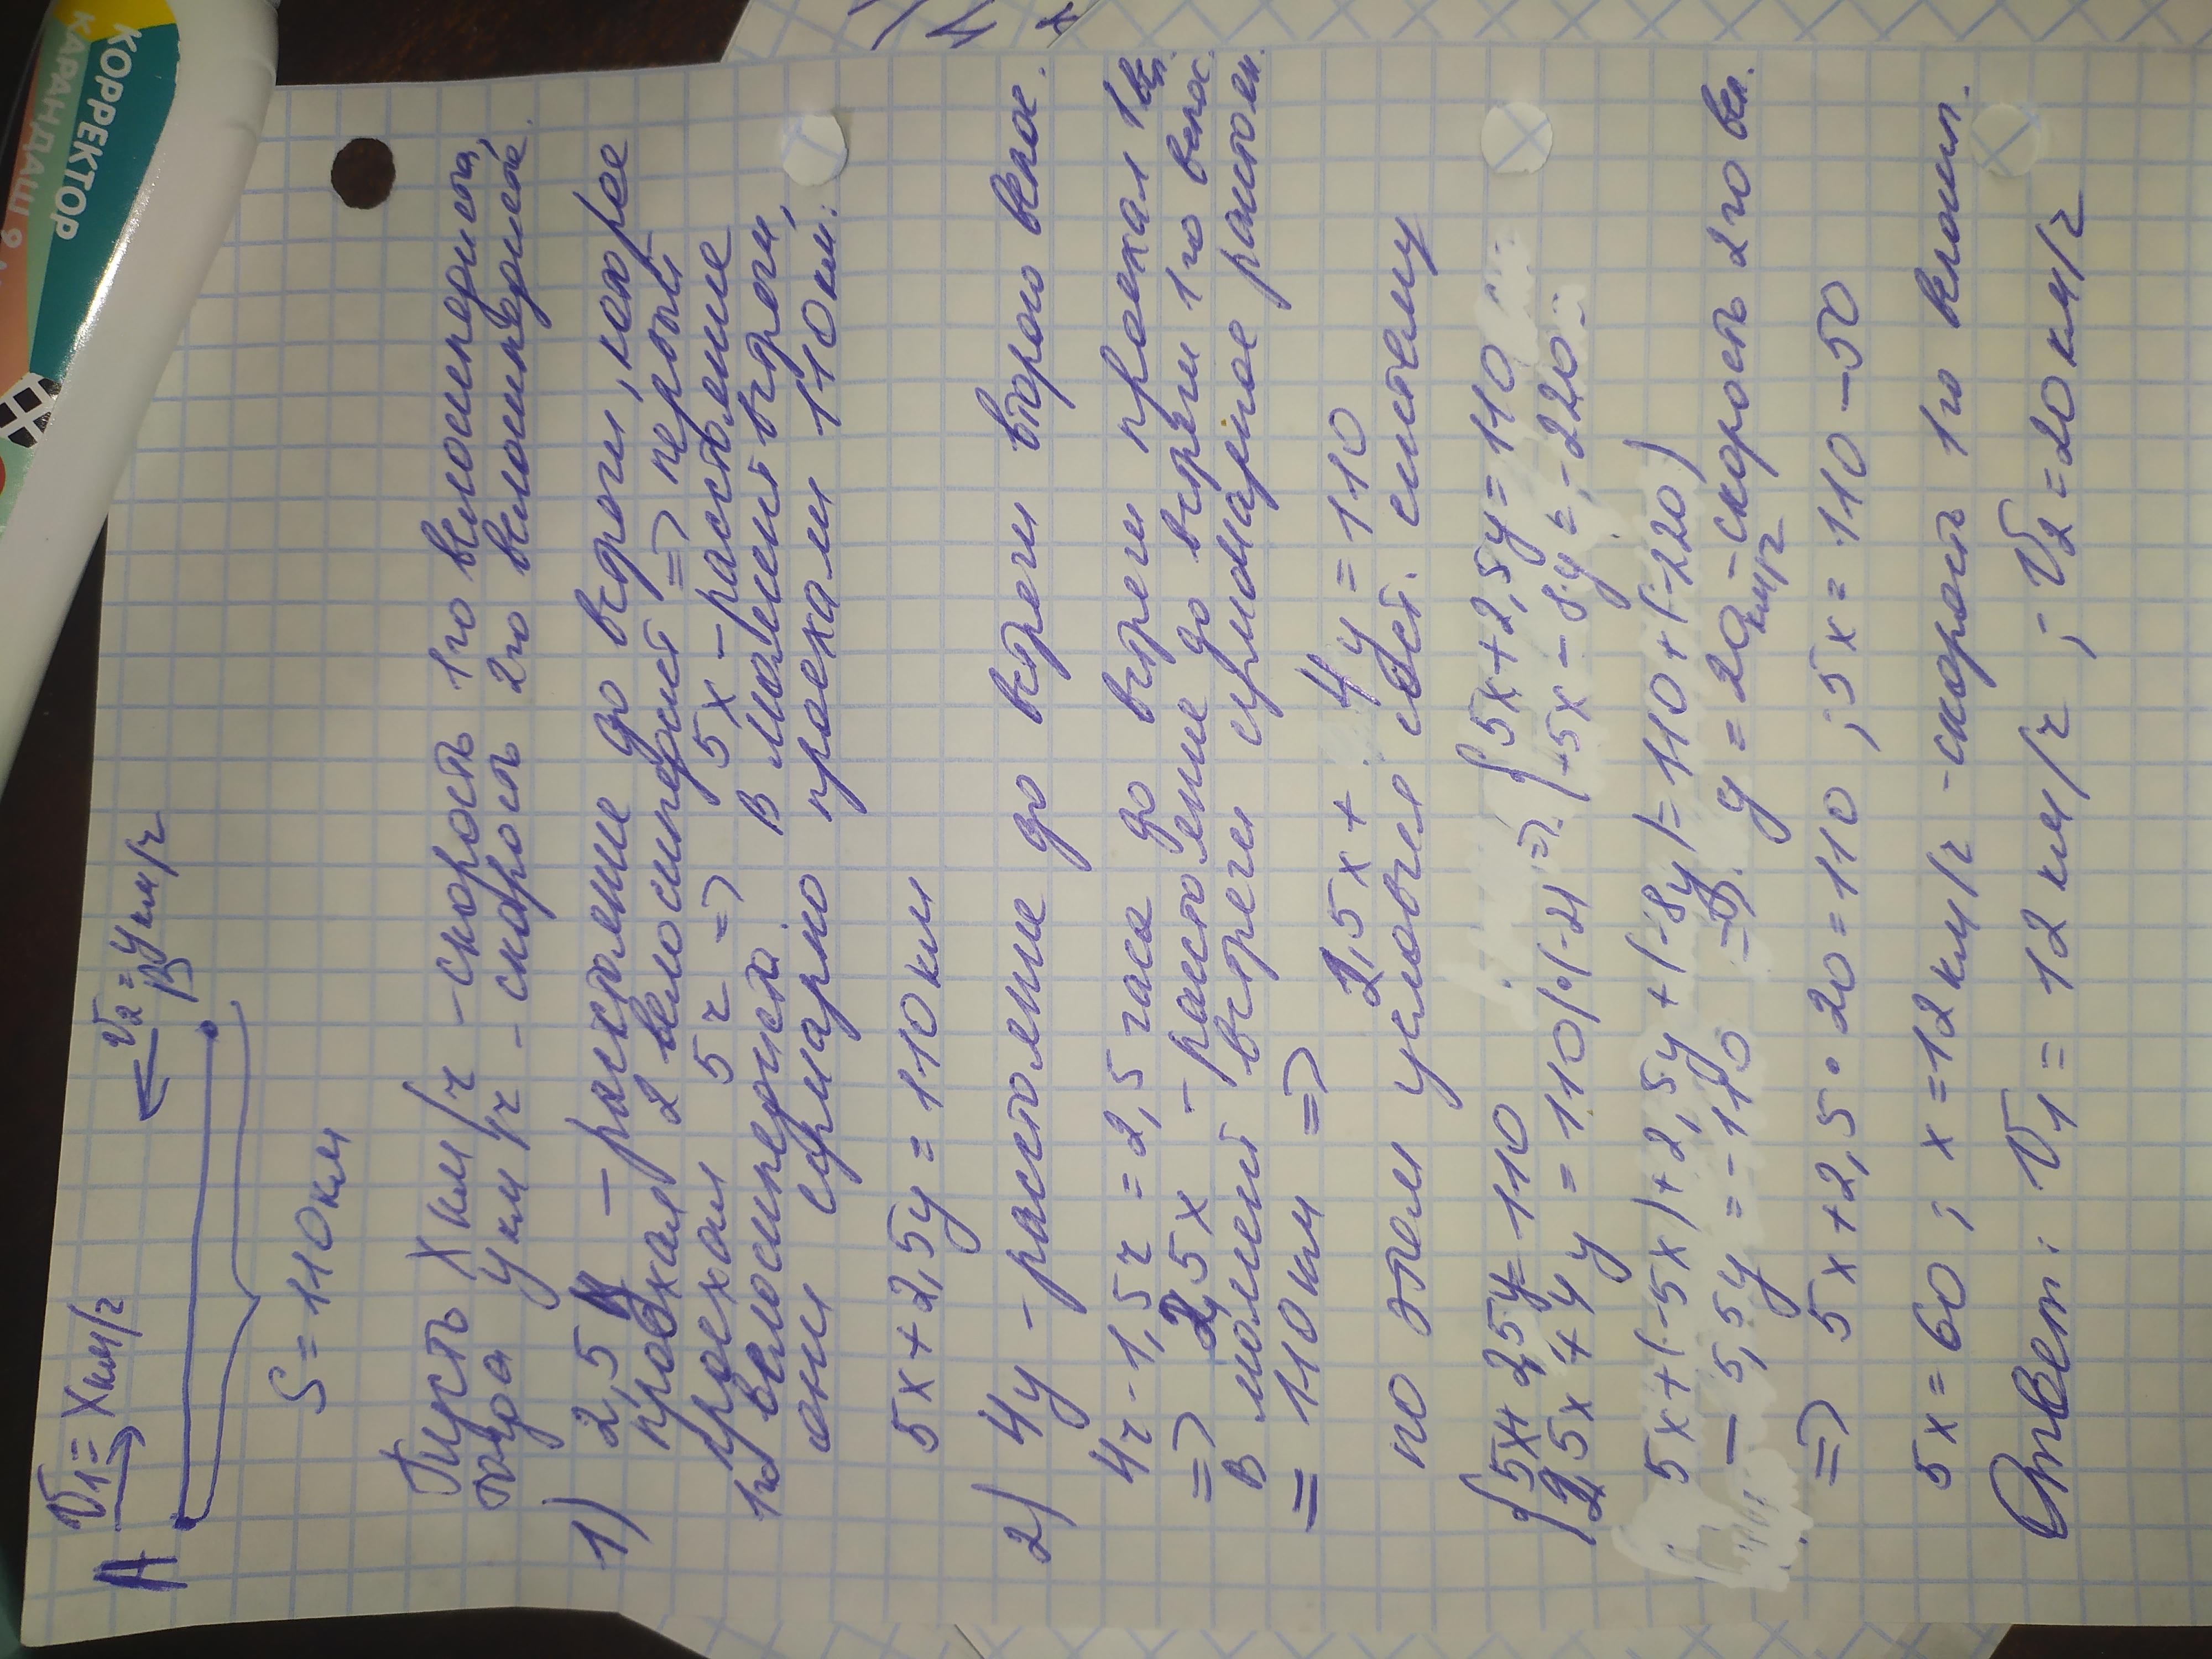 КОРРЕКТОР
КАРАНДАШ
V₁ = x км/ч
V₂ = y км/ч
A
B
S = 110 км
Пусть x км/ч - скорость 1го велосипедиста,
тогда y км/ч - скорость 2го велосипедиста.
1) 2,5 y - расстояние до встречи, которое
проехал 2 велосипедист => первый
проехал 5 ч => 5x - расстояние
1го велосипедиста. В момент встречи,
они суммарно проехали 110 км.
5x + 2,5y = 110 км
2) 4y - расстояние до встречи второго велос.
4ч - 1,5ч = 2,5 часа до встречи проехал 1 вел.
=> 2,5x - расстояние до встречи 1го велос.
В момент встречи суммарное расстоян.
= 110 км => 2,5x + 4y = 110
по этем условия сост. систему
{5x + 2,5y = 110
{2,5x + 4y = 110 |·(-2) => {5x + 2,5y = 110
{-5x - 8y = -220
5x + (-5x) + 2,5y + (-8y) = 110 + (-220)
- 5,5y = -110 => y = 20 км/ч - скорость 2го вел.
=> 5x + 2,5 · 20 = 110 ; 5x = 110 - 50
5x = 60 ; x = 12 км/ч - скорость 1го велосип.
Ответ: V₁ = 12 км/ч ; V₂ = 20 км/ч